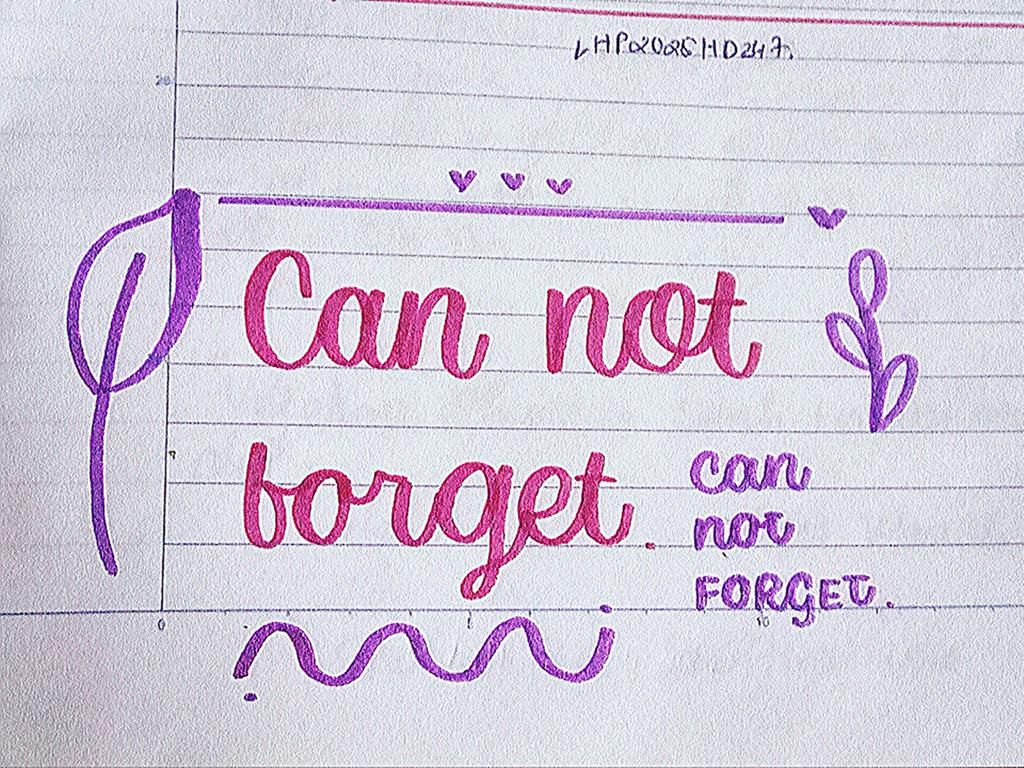 LHP2025HD247.
Can not
forget.
can
not
FORGET.